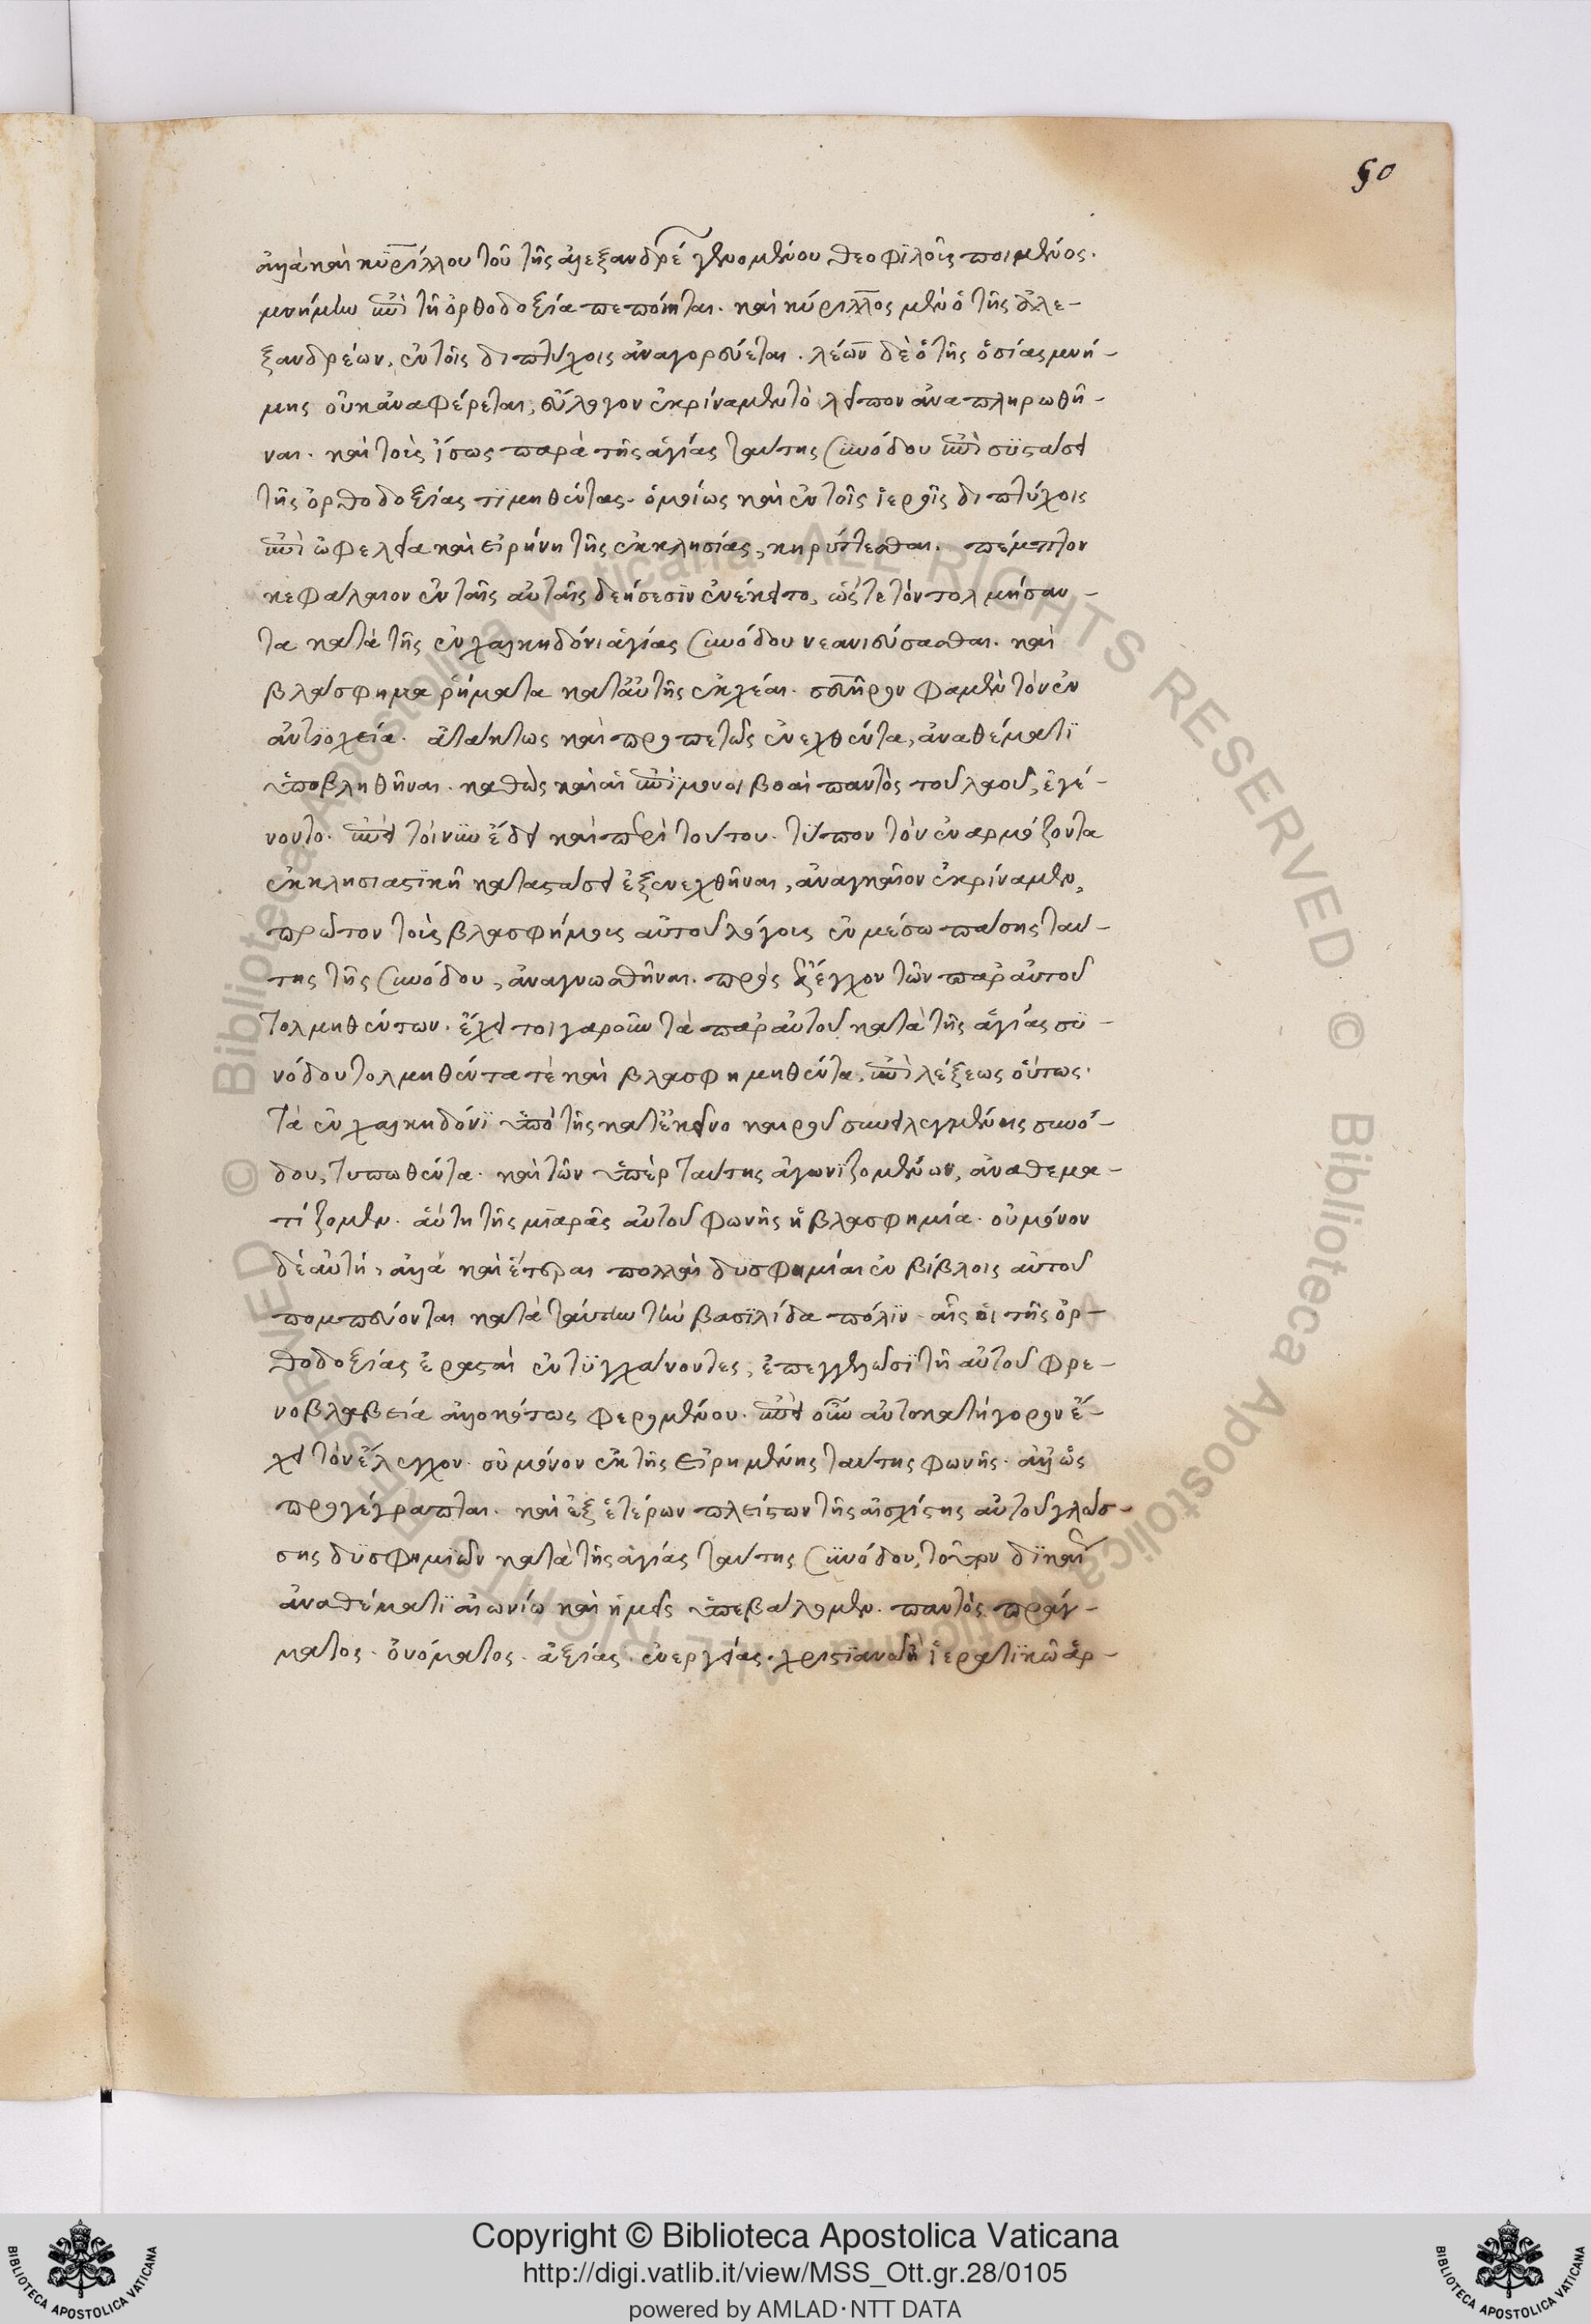 50
ἀλλὰ καὶ κυρίλλου τοῦ τῆς ἀλεξανδρέ γενομένου θεοφιλοῦς ποιμένος.
μνήμην ἐπὶ τῆ ὀρθοδοξία πεποίηται. καὶ κύριλλος μὲν ὁ τῆς ἀλε-
ξανδρέων, ἐν τοῖς διπτύχοις ἀναγορεύεται. λέων δὲ ὁ τῆς ὁσίας μνή-
μης οὐκ ἀναφέρεται, εὔλογον ἐκρίναμεν τὸ λεῖπον ἀναπληρωθῆ-
ναι. καὶ τοὺς ἴσως παρὰ τῆς ἁγίας ταύτης συνόδου ἐπὶ συστάσει
τῆς ὀρθοδοξίας τιμηθέντας. ὁμοίως καὶ ἐν τοῖς ἱεροῖς διπτύχοις
ἐπὶ ὠφελεία καὶ εἰρήνη τῆς ἐκκλησίας, κηρύττεσθαι. πέμπτον
κεφάλαιον ἐν ταῖς αὐταῖς δεήσεσιν ἐνέκειτο, ὥστε τὸν τολμήσαν-
τα κατὰ τῆς ἐν χαλκηδόνι ἁγίας συνόδου νεανιεύσασθαι. καὶ
βλάσφημα ῥήματα κατ' αὐτῆς ἐκχέαι. σευῆρον φαμὲν τὸν ἐν
ἀντιοχεία. ἀτάκτως καὶ προπετῶς ἐνεχθέντα, ἀναθέματι
ὑποβληθῆναι. καθὼς καὶ αἱ ἐπίμονοι βοαὶ παντὸς τοῦ λαοῦ, ἐγέ-
νοντο. ἐπεὶ τοίνυν ἔδει καὶ περὶ τούτου. τύπον τὸν ἐναρμόζοντα
ἐκκλησιαστικῆ καταστάσει ἐξενεχθῆναι, ἀναγκαῖον ἐκρίναμεν,
πρῶτον τοὺς βλασφήμους αὐτοῦ λόγους ἐν μέσω πάσης ταύ-
της τῆς συνόδου, ἀναγνωσθῆναι. πρὸς ἔλεγχον τῶν παρ' αὐτοῦ
τολμηθέντων. ἔχει τοιγαροῦν τὰ παρ' αὐτοῦ κατὰ τῆς ἁγίας συ-
νόδου τολμηθέντα τὲ καὶ βλασφημηθέντα, ἐπὶ λέξεως οὕτως.
τὰ ἐν χαλκηδόνι ὑπὸ τῆς κατ' ἐκεῖνο καιροῦ συνειλεγμένης συνό-
δου, τυπωθέντα. καὶ τῶν ὑπὲρ ταύτης ἀγωνιζομένων, ἀναθεμα-
τίζομεν. αὕτη τῆς μιαρᾶς αὐτοῦ φωνῆς ἡ βλασφημία. οὐ μόνον
δὲ αὐτὴ, ἀλλὰ καὶ ἕτεραι πολλαὶ δυσφημίαι ἐν βίβλοις αὐτοῦ
πομπεύονται κατὰ ταύτην τὴν βασιλίδα πόλιν. αἷς οἱ τῆς ὀρ-
θοδοξίας ἐρασταὶ ἐντυγχάνοντες, ἐπεγγελῶσι τῆ αὐτοῦ φρε-
νοβλαβεία ἀλλοκότως φερομένου. ἐπεὶ οὖν αὐτοκατήγορον ἔ-
χει τὸν ἔλεγχον. οὐ μόνον ἐκ τῆς εἰρημένης ταύτης φωνῆς. ἀλλ' ὡς
προγέγραπται. καὶ ἐξ ἑτέρων πλείστων τῆς αἰσχίστης αὐτοῦ γλώσ-
σης δυσφημιῶν κατὰ τῆς ἁγίας ταύτης συνόδου, τοῦτον δικαί
ἀναθέματι αἰωνίω καὶ ἡμεῖς ὑπεβάλομεν. παντὸς πράγ-
ματος. ὀνόματος. ἀξίας. ἐνεργείας. χριστιανοῖς ἢ ἱερατικῶ ἁρ-
Copyright © Biblioteca Apostolica Vaticana
http://digi.vatlib.it/view/MSS_Ott.gr.28/0105
powered by AMLAD·NTT DATA